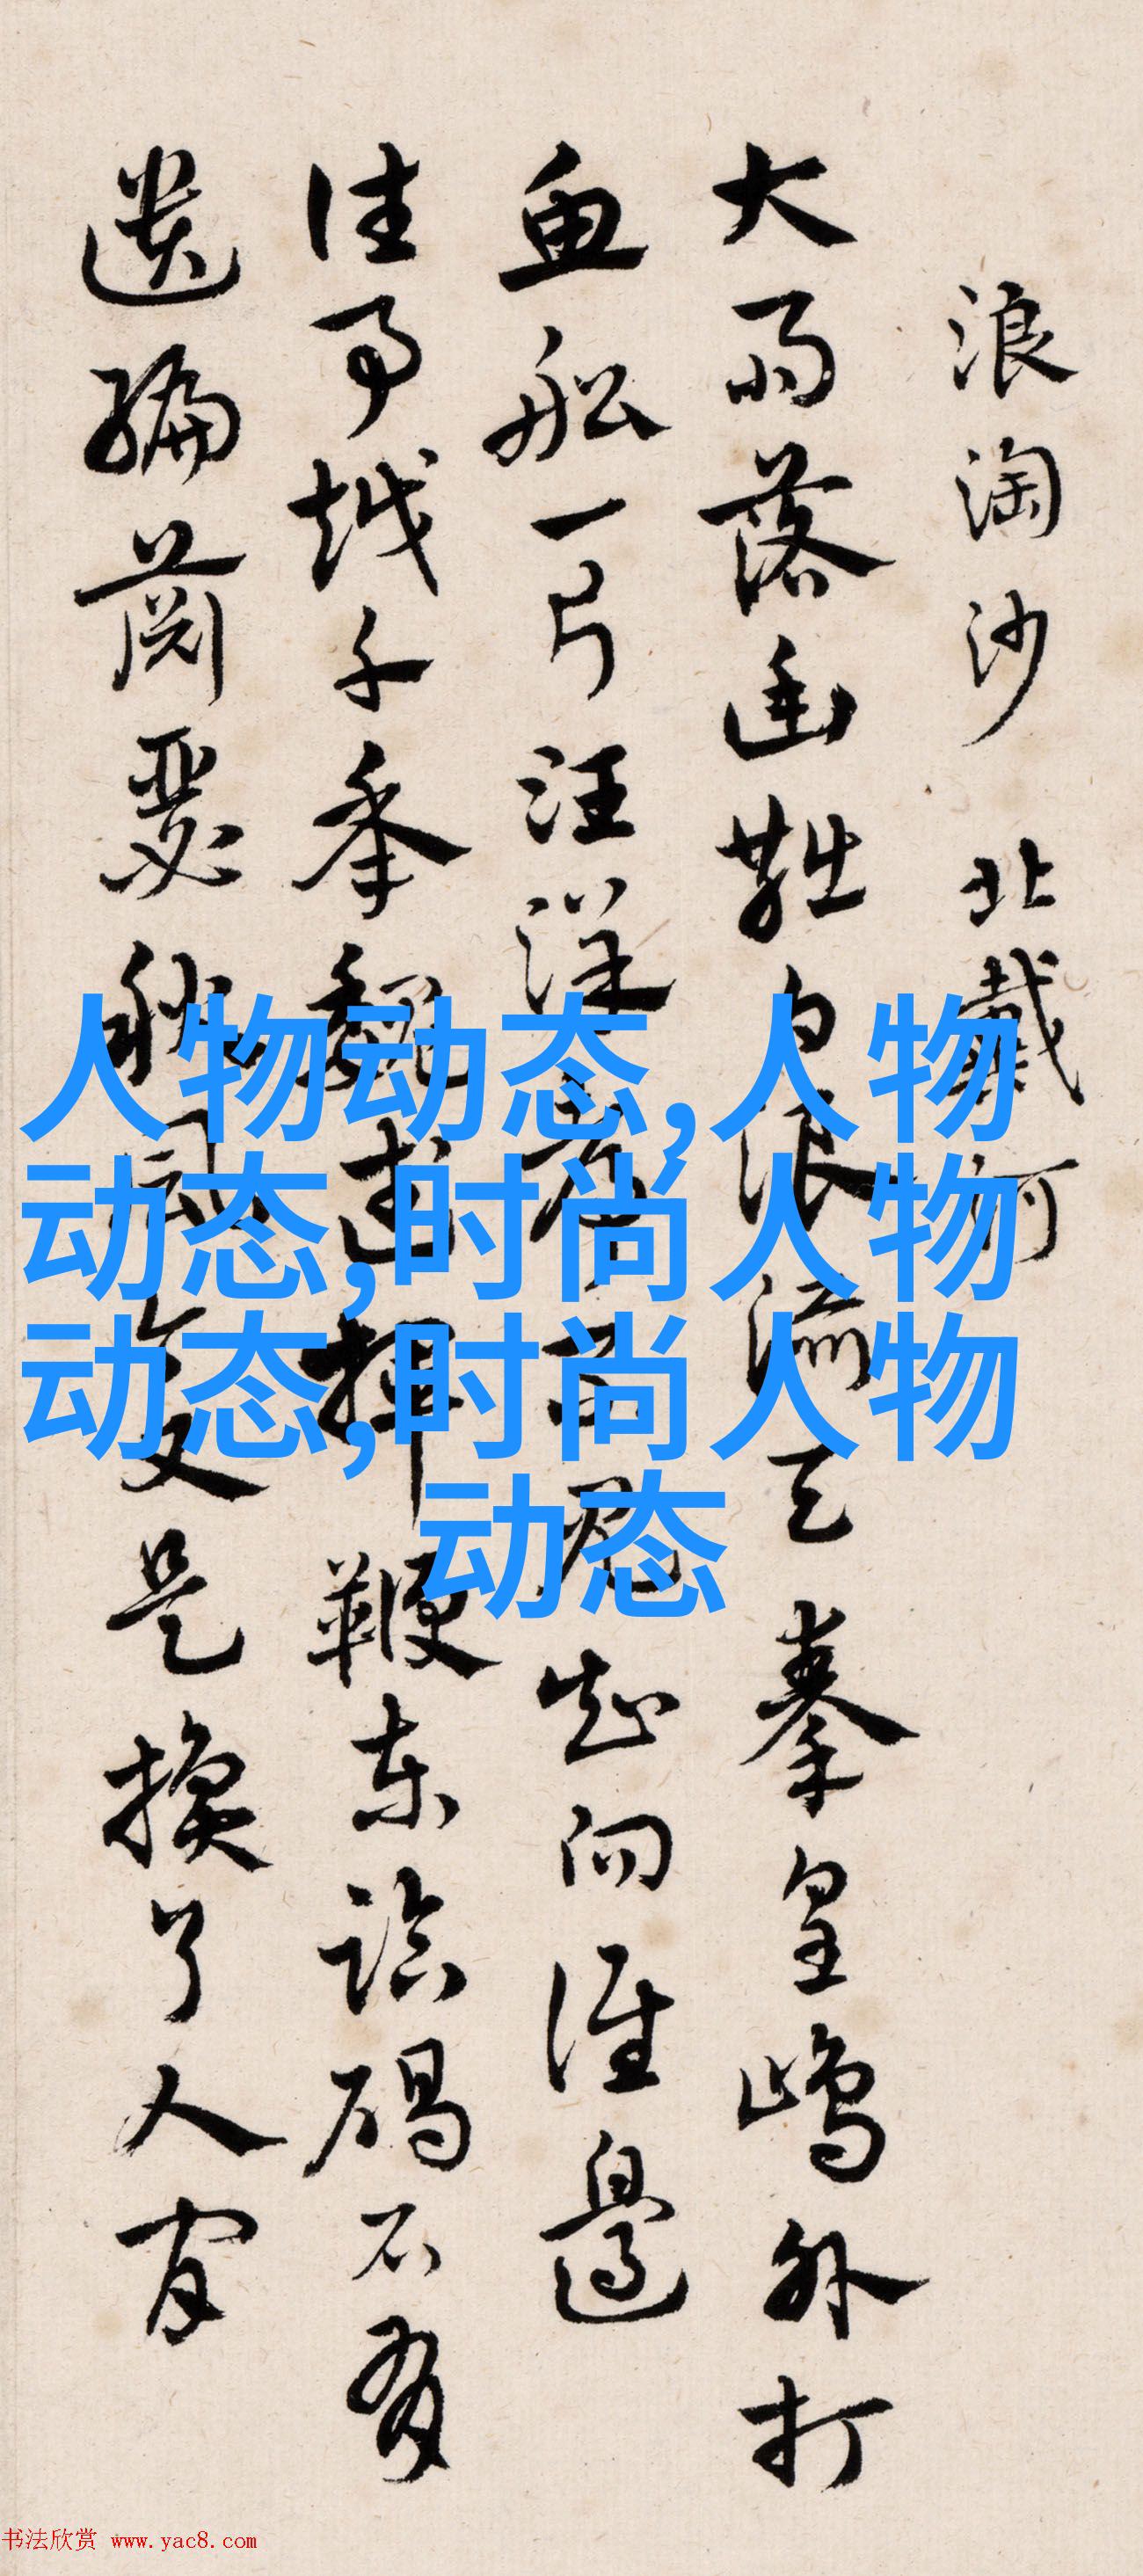 浪淘沙 北戴河
大雨落幽燕白浪滔天秦皇島外打
魚船一片汪洋都不見知向誰邊
往事越千年魏武揮鞭東臨碣石有
遺編蕭瑟秋風今又是換了人間
人物动态,人物
动态,时尚人物
动态,时尚人物
动态
书法欣赏 www.yac8.com